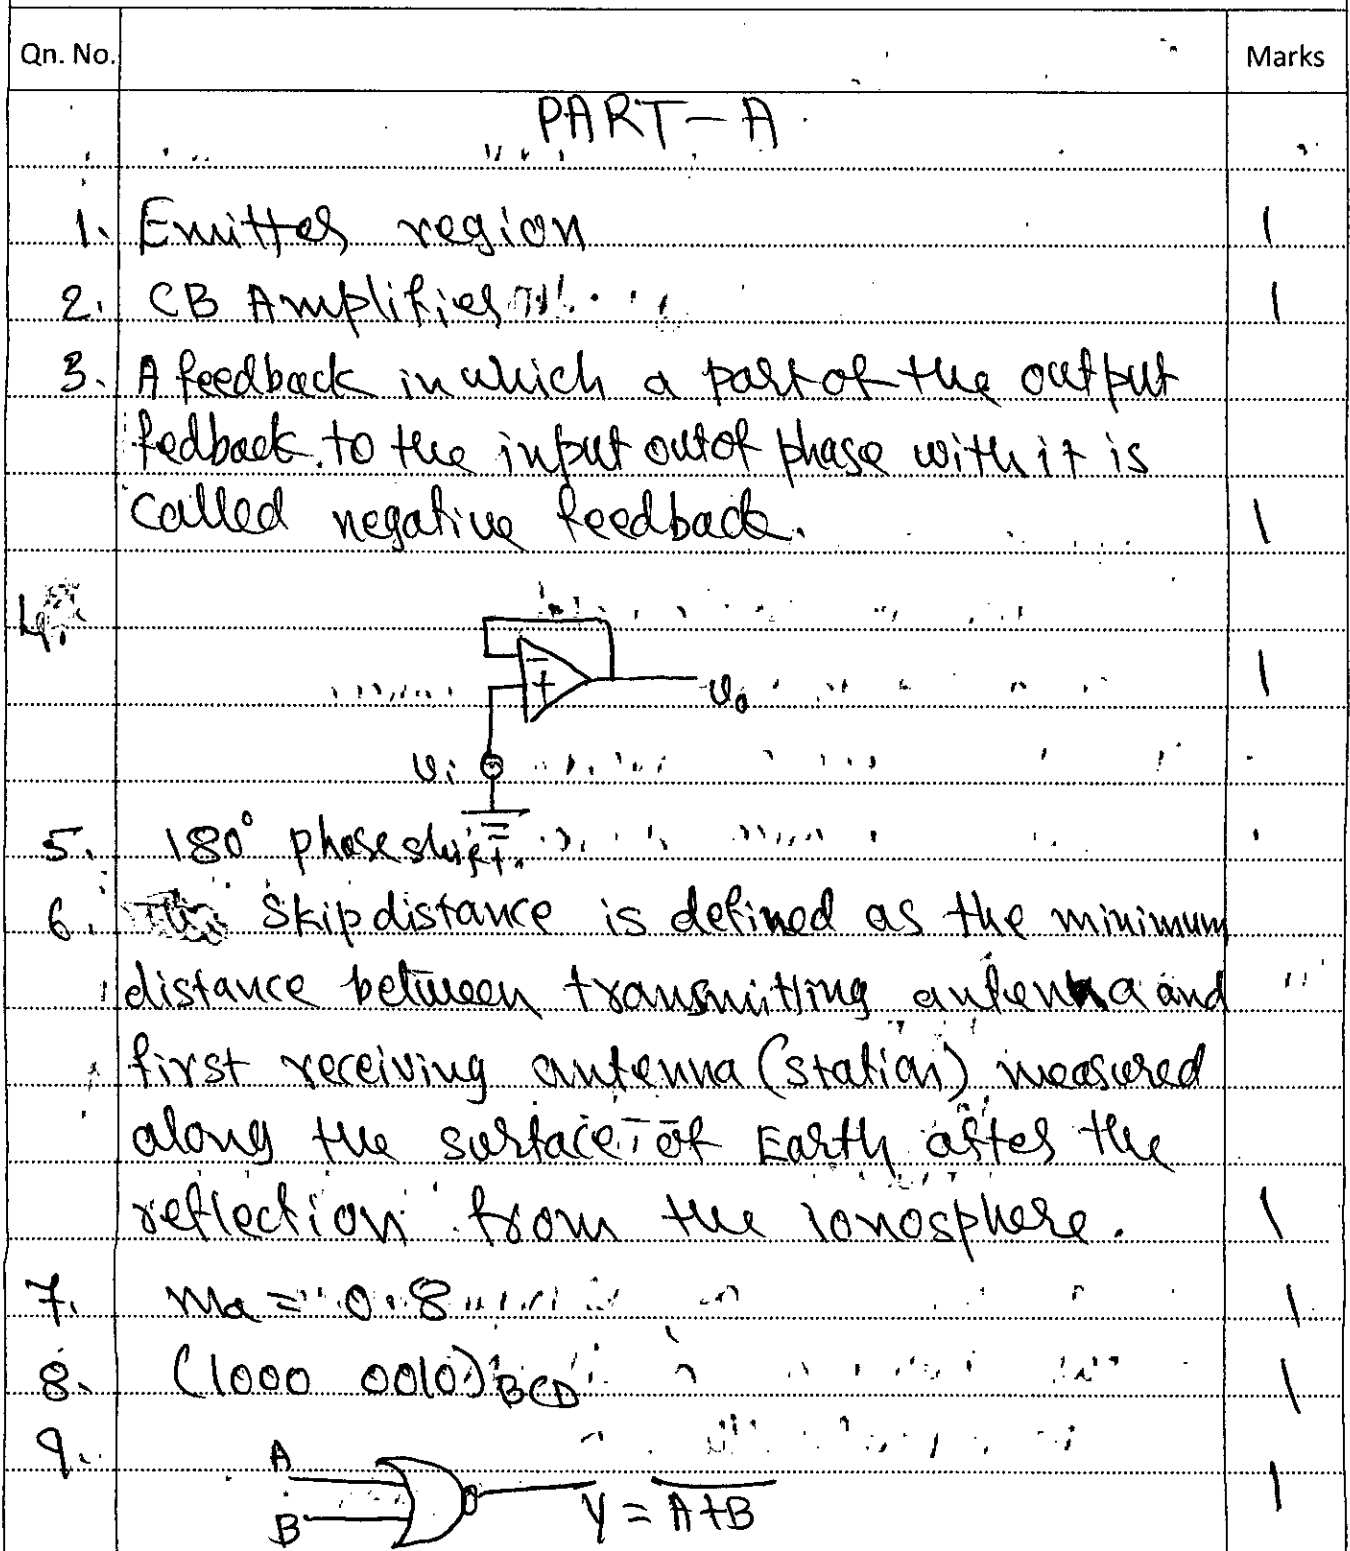 Qn. No. Marks
PART-A
1. Emitter region 1
2. CB Amplifier 1
3. A feedback in which a part of the output
fedback to the input out of phase with it is
called negative feedback. 1
4.
- + v₀ 1
vᵢ
5. 180° phase shift.
6. Skip distance is defined as the minimum
distance between transmitting antenna and
first receiving antenna (station) measured
along the surface of Earth after the
reflection from the ionosphere. 1
7. ma = 0.8 1
8. (1000 0010)BCD 1
9. A
B Y = \overline{A+B} 1